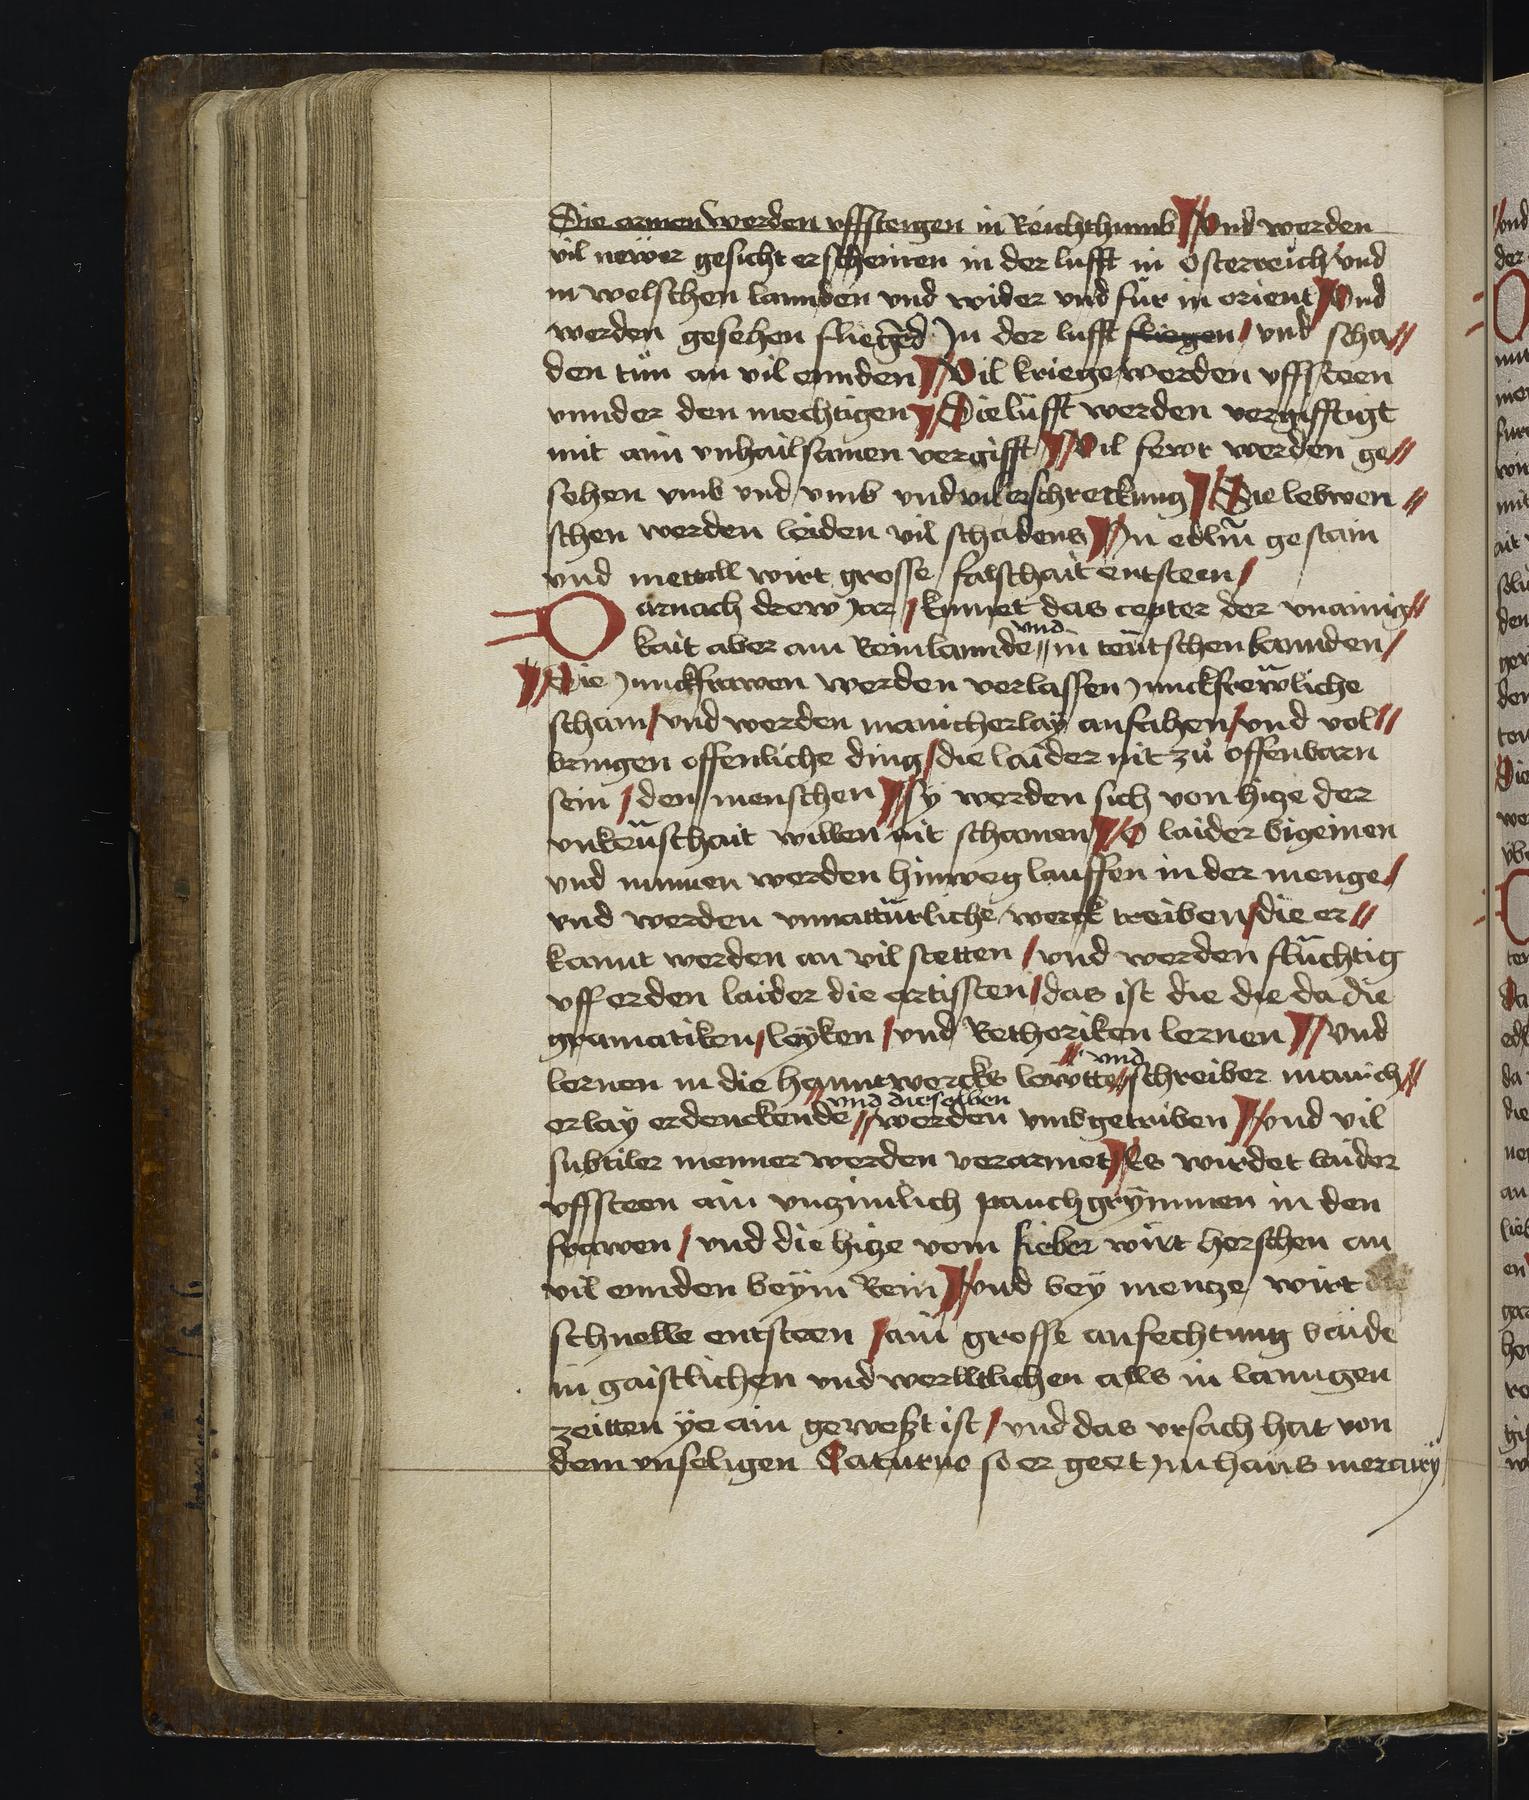 Die armen werden uffsteigen in Reichthumb Und werden
vil newer gesicht erscheinen in der lufft in Osterreich / und
in welschen lannden und wider und für in orient Und
werden gesehen fliegēd In der lufft fliegen / und scha//
den tun an vil ennden Vil kriege werden uffsteen
unnder den mechtigen Die lüfft werden vergifftigt
mit aim unhailsamen vergifft Vil fewr werden ge//
sehen umb und umb und vil erschreckung Die lebwen //
schen werden leiden vil schadens In edlm̄ gestain
und mettall wirt grosse falschait entsteen /
Darnach drew Jar / kumet das cepter der unainig//
kait aber am Reinlannde // und in teütschen lannden /
Die Junckfrawen werden verlassen Junckfrewliche
scham / und werden manicherlay anfahen / und vol//
bringen offenliche ding / die laider nit zů offenbarn
sein / den menschen sy werden sich von hize der
unkeüschait willen nit schamen O laider bigeinen
und nunnen werden hinweg lauffen in der menge /
und werden unnattürliche werck treiben / die er//
kannt werden an vil stetten / und werden flüchtig
uff erden laider die artissten / das ist die die da die
gramatiken / leyken / und Rethoriken lernen Und
lernen in die hanntwercks lewtte // und schreiber manich//
erlay erdenckende // und dieselben werden umbgetriben und vil
subtiler menner werden verarmet Es wirdet laider
uffsteen ain unzimlich pauchgrymmen in den
frawen / und die hize vom fieber wirt herschen an
vil ennden beym Rein und bey mentze wirt
schnelle entsteen / ain grosse anfechtung baide
in gaistlichen und werlltlichen alls in lanngen
zeitten ye ain gewesst ist / und das ursach hat von
dem unseligen Saturno so er geet Im haus mercury